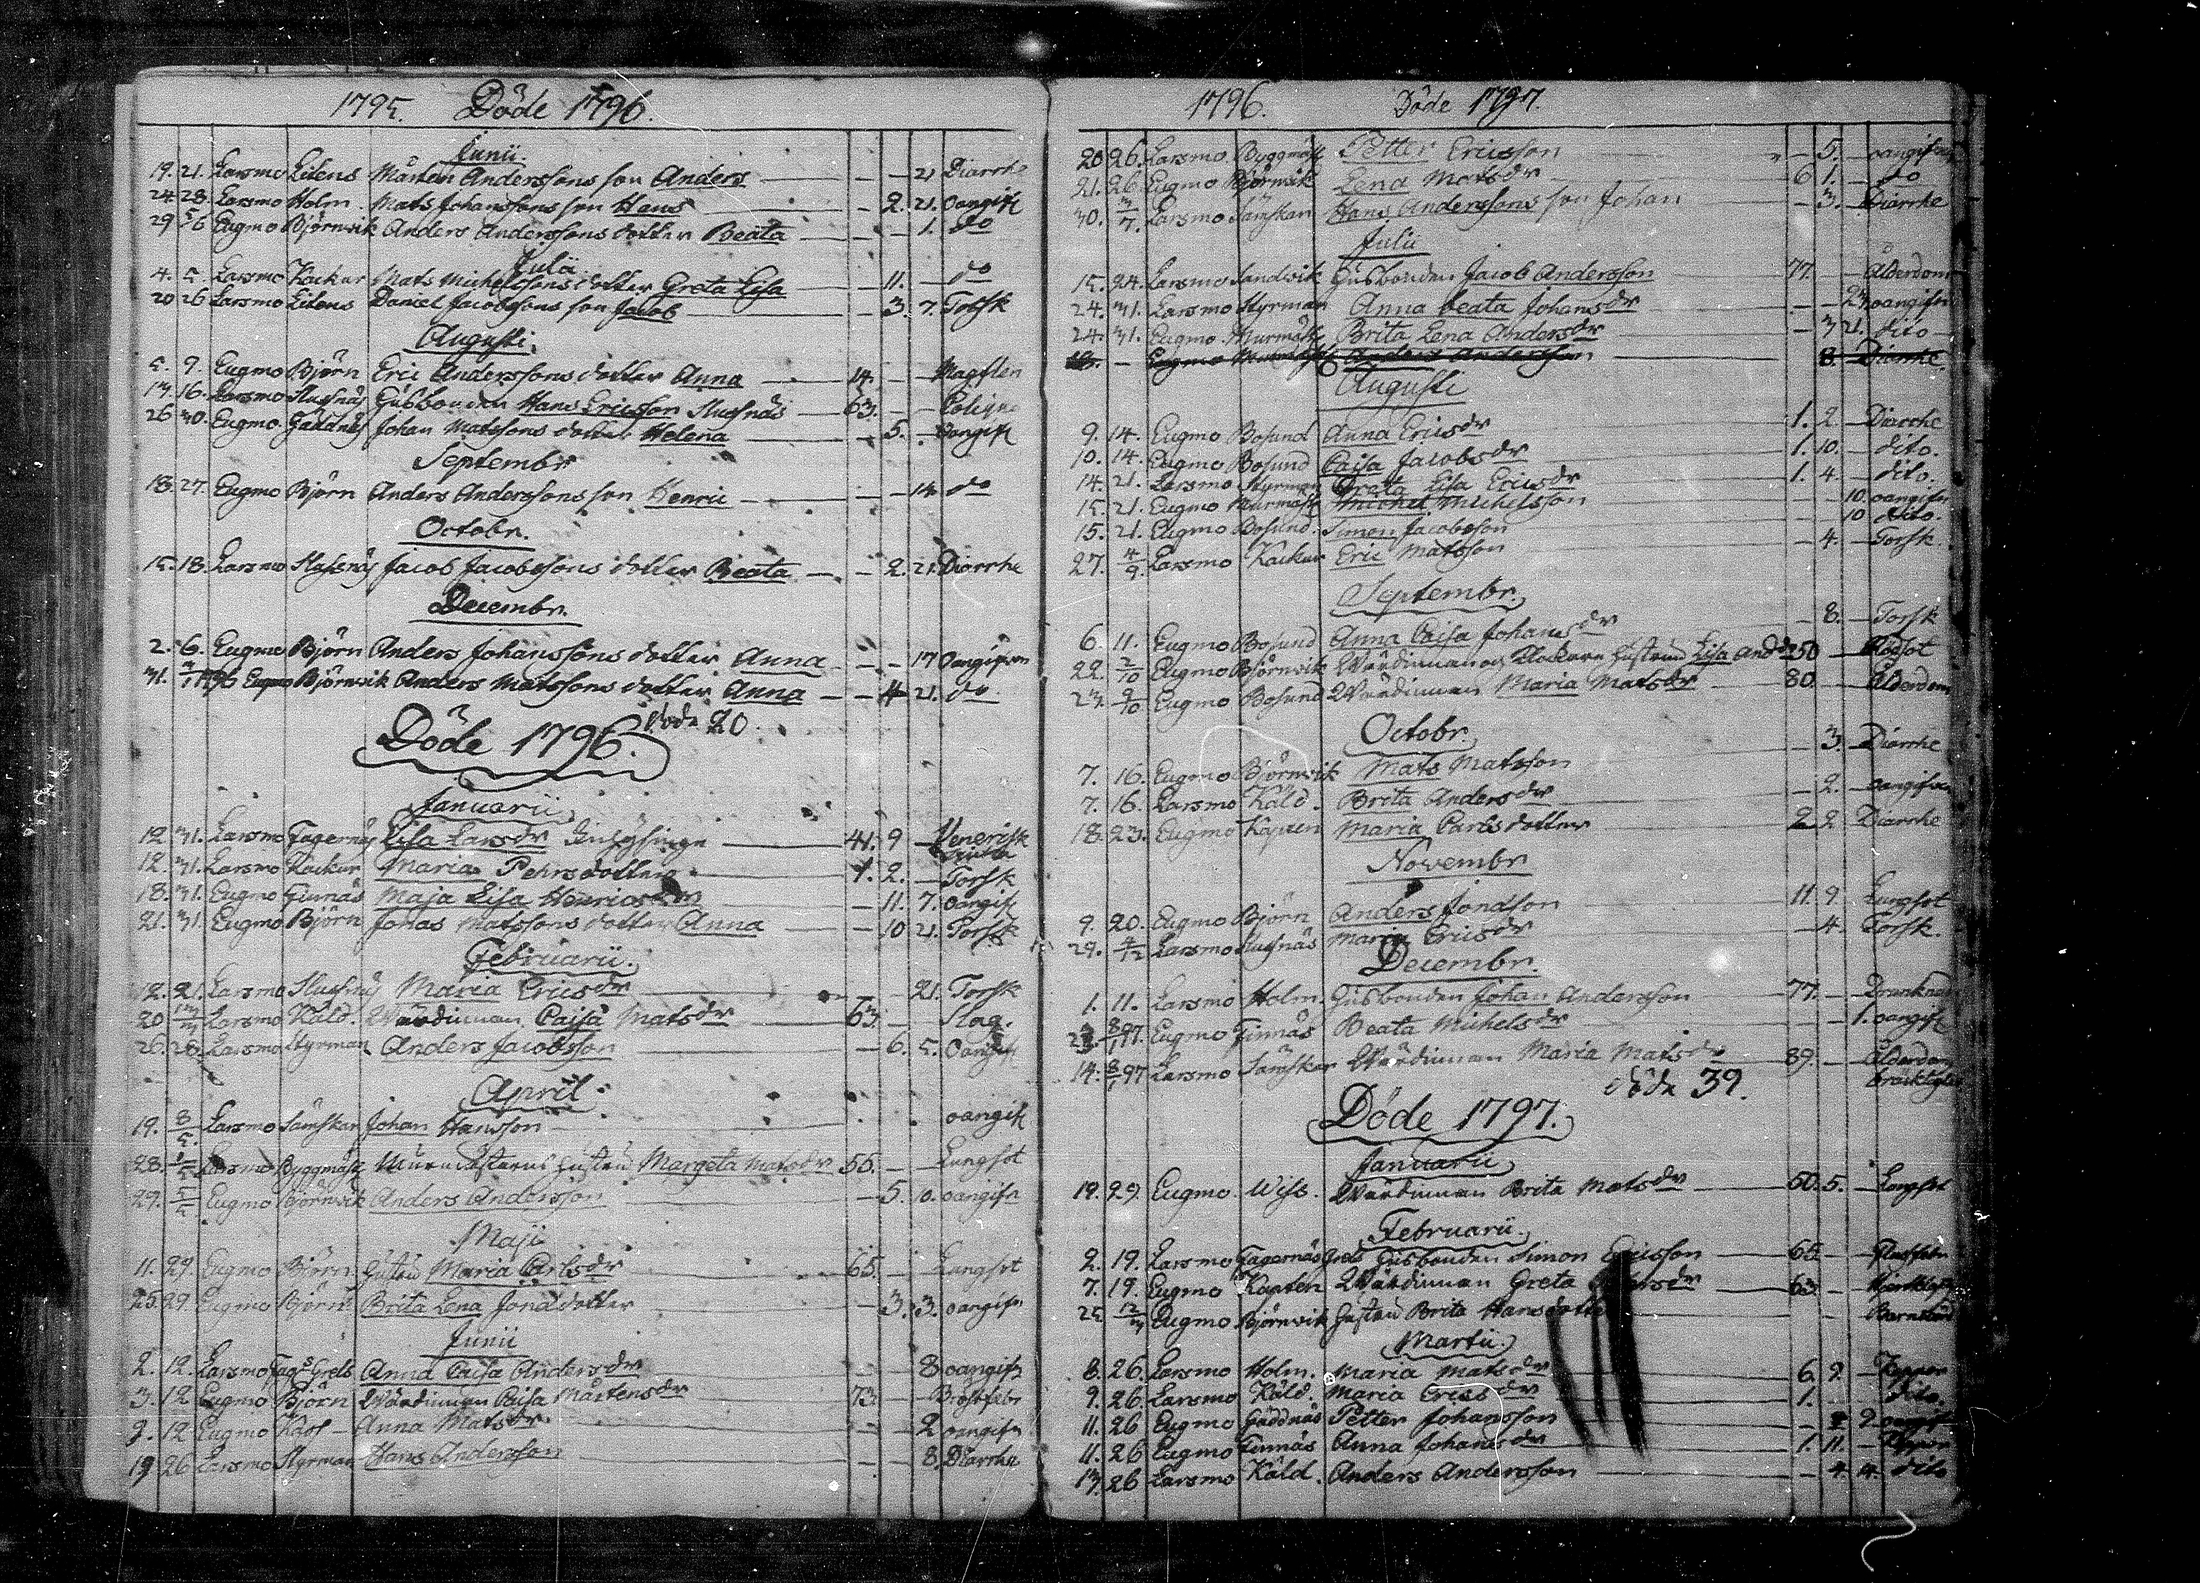 1795. Döde 1796.
Junii.
19. 21. Larsmo Litens Mårten Anderssons son Anders — — 21 Diarrhe
24 28. Larsmo Holm. Mats Johanssons son Hans — 2. 21. Oangift
29 5/6 Eugmo Björnvik Anders Anderssons dotter Beata — — 1. do
Julii
4. 5. Larsmo Kackur Mats Michelssons dotter Greta Lisa — 11. — do
20 26 Larsmo Litens Daniel Jacobssons son Jacob — 3. 7. Torsk
Augusti.
5. 9. Eugmo Björn Eric Anderssons dotter Anna — 14. — —
13. 16. Larsmo Slusnäs Gusbonden Hans Ericsson Slusnäs — 63. — —
26 30. Eugmo Gäddnäs Johan Matssons dotter Helena — 5. — Oangift
Septembr
18. 27. Eugmo Björn Anders Anderssons son Henric — — — 14 do
Octobr.
15. 18. Larsmo Slusnäs Jacob Jacobssons dotter Beata — — 2. 21. Diarrhe
Decembr.
2. 6. Eugmo Björn Anders Johanssons dotter Anna — — 17 Oangifven
31. 3/1 1796 Eugmo Björnvik Anders Matssons dotter Anna — — 4 21. do
döde 20.
Döde 1796.
Januarii
12 31. Larsmo Fagernäs Lisa Larsdr Inhysinge — 41. 9 — Venerisk
12. 31. Larsmo Kackur Maria Pehrsdotter — 1. 2. — Torsk
18. 31. Eugmo Finnäs Maja Lisa Henricsdr — 11. 7. oangift
21. 31. Eugmo Björn Jonas Matssons dotter Anna — — 10 21. Torsk
Februarii.
12. 21. Larsmo Slusnäs Maria Ericsdr — — 21. Torsk
20 13/3 Larsmo Käld. Wärdinnan Caisa Matsdr — 63. — Slag.
26. 28. Larsmo Styrman Anders Jacobsson — 6. 5. Oangift
April.
19. 8/5. Larsmo Sämskar Johan Hansson — oangift
28. Larsmo Byggmäst Murmästarens hustru Margeta Matsdr 55. — Lungsot
29. 5/5 Eugmo Björnvik Anders Andersson — 5. 0. oangifn
Maji
11. 29. Eugmo Björn. hustru Maria Carlsdr — 65. — Lungsot
25. 29. Eugmo Björn Brita Lena Jonadotter — 3. 3. oangifn
Junii
2. 12. Larsmo Fags Grels Anna Caisa Andersdr — 8 oangifn
3. 12 Eugmo Björn Wärdinnan Caisa Mårtensdr — 73. — Bröstfebr
9. 12 Eugmo Käof — Anna Matsdr — — 2 oangifn
19 26 Larsmo Styrman Hans Andersson — — 8. Diarrhe
1796. Döde 1797.
20 26. Larsmo Byggmäst Petter Ericsson — 5. — oangifven
21. 26 Eugmo Björnvik Lena Matsdr — 6 1. — do
30. 3/7. Larsmo Sämskar Hans Anderssons son Johan — 3. — Diarrhe
Julii
15. 24. Larsmo Sandvik Gusbonden Jacob Andersson — 77. — Ålderdom
24. 31. Larsmo Styrman Anna beata Johansdr — — 23 oangifn
24. 31. Eugmo Murmäst Brita Lena Andersdr — 3 21. dito
— Eugmo Murmäst Anders Andersson — 8. Diarrhe.
Augusti
9. 14. Eugmo Bosund Anna Ericsdr — 1. 2. — Diarrhe
10. 14. Eugmo Bosund Caisa Jacobsdr — 1. 10. — dito.
14. 21. Larsmo Styrman Greta Lisa Ericsdr — 1. 4. — dito.
15. 21. Eugmo Murmäst Michel Michelsson — — 10. oangifn
15. 21. Eugmo Bosund. Simon Jacobsson — — 10 dito.
27. 4/9. Larsmo Kackur Eric Matsson — 4. — Torsk.
Septembr.
6. 11. Eugmo Bosund Anna Caisa Johansdr — 8. — Torsk
22. 2/10 Eugmo Björnvik Wärdinnan och Klockare hustrun Lisa Anddr 50 — Rödsot
23. 9/10 Eugmo Bosund Wärdinnan Maria Matsdr — 80. — Ålderdom
Octobr.
7. 16. Eugmo Björnvik Mats Matsson — 3. — Diarrhe
7. 16. Larsmo Käld. Brita Andersdr — 2. — oangifven
18. 23. Eugmo Kapten Maria Carlsdotter — 2 2 Diarrhe
Novembr
9. 20. Eugmo Björn Anders Jonsson — 11. 9 Lungsot
29. 4/12 Larsmo Slusnäs Maria Ericsdr — 4. — Torsk.
Decembr.
1. 11. Larsmo Holm. Gusbonden Johan Andersson — 77. — Drunknad
23. 8/1 97. Eugmo Finnäs Beata Michelsdr — — 1. oangift
14. 8/1 97 Larsmo Sämskar Wärdinnan Maria Matsdr — 89. — Ålderdoms
bräcklighet
döde 39.
Döde 1797.
Januarii
19. 29. Eugmo. Wiss. Wärdinnan Brita Matsdr — 60. 5. — Lungsot
Februarii.
2. 19. Larsmo Fagernäs Grels Gusbonden Simon Ericsson — 65 —
7. 19. Eugmo Kapten Wärdinnan Greta — 63. —
25 12/3 Eugmo Björnvik hustru Brita Hansdotter — — Barnsbörd
Martii.
8. 26. Larsmo Holm. Maria Matsdr — 6. 2. — Koppor
9. 26. Larsmo Käld. Maria Ericsdr — 1. — dito.
11. 26 Eugmo Gäddnäs Petter Johansson — 2 oangift
11. 26 Eugmo Finnäs Anna Johansdr — 1. 11. — Koppor
13. 26 Larsmo Käld. Anders Andersson — 4. 4. dito